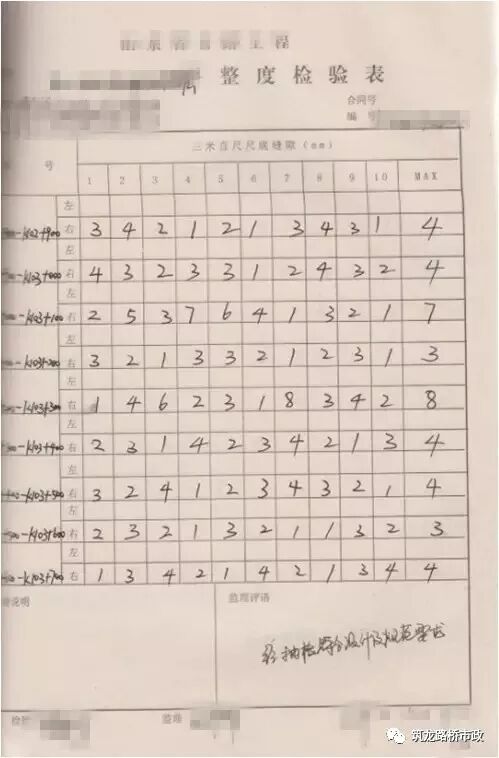 整度检验表
合同号
编 号
号 三米直尺尺底缝隙(mm)
1 2 3 4 5 6 7 8 9 10 MAX
左
-K102+900 右 3 4 2 1 2 1 3 4 3 1 4
左
-K103+000 右 4 3 2 3 3 1 2 4 3 2 4
左
-K103+100 右 2 5 3 7 6 4 1 3 2 1 7
左
-K103+200 右 3 2 1 3 3 2 1 2 3 1 3
左
-K103+300 右 1 4 6 2 3 1 8 3 4 2 8
左
-K103+400 右 2 3 1 4 2 3 4 2 1 3 4
左
-K103+500 右 3 2 4 1 2 3 4 3 2 1 4
左
-K103+600 右 2 3 2 1 3 2 1 1 3 2 3
左
-K103+700 右 1 3 4 2 1 4 2 1 3 4 4
说明 监理评语
经抽检符合设计及规范要求
监理
筑龙路桥市政